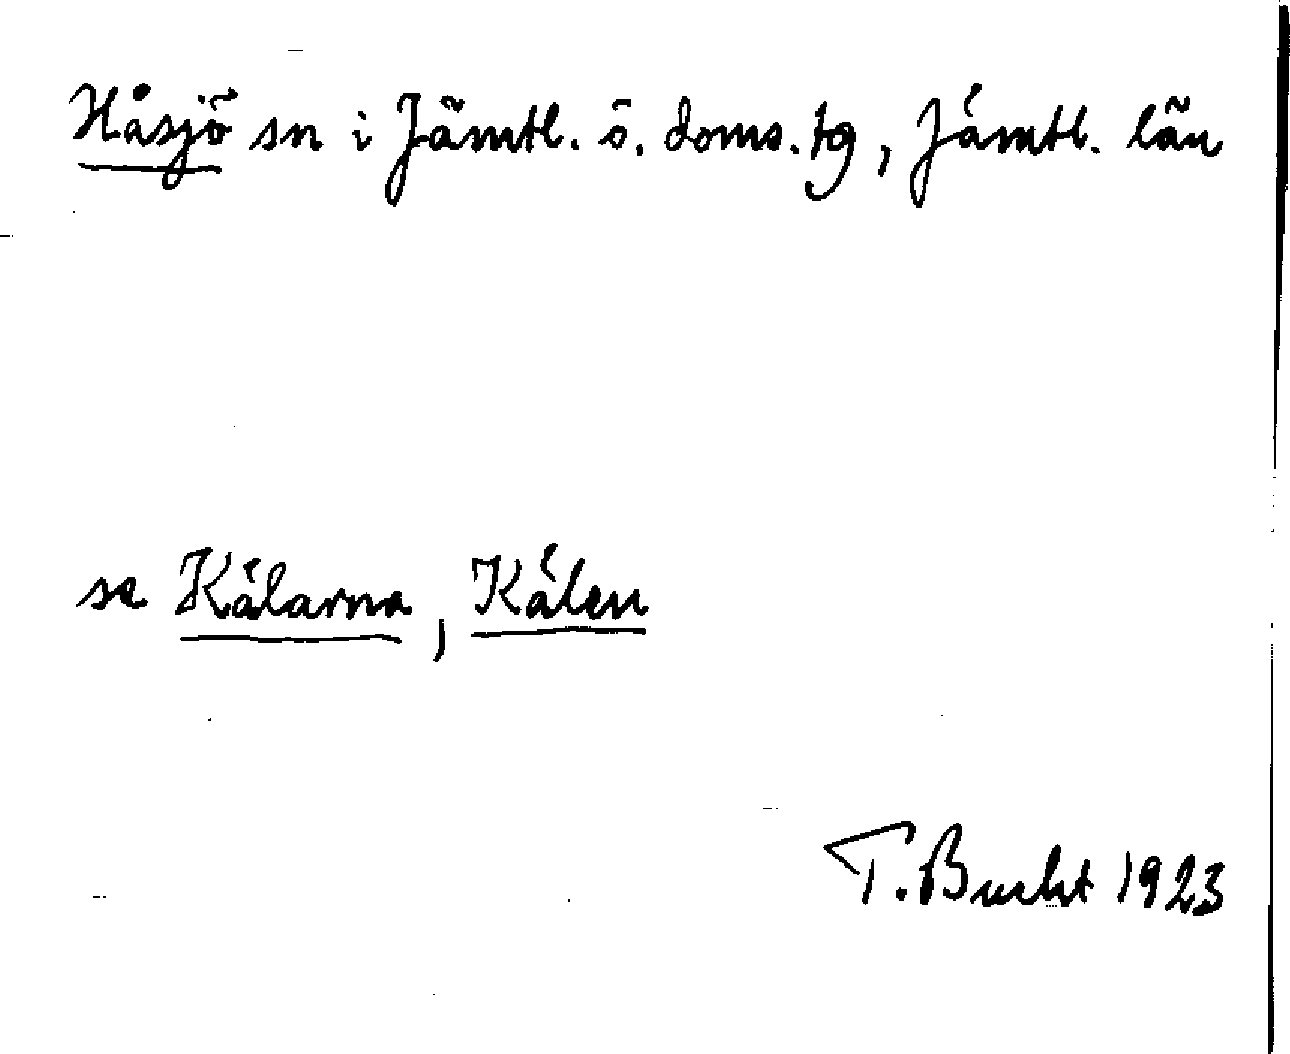 Håsjö sn i Jämtl. ö. doms. tg, Jämtl. län
se Kälarna, Kälen
T. Bucht 1923